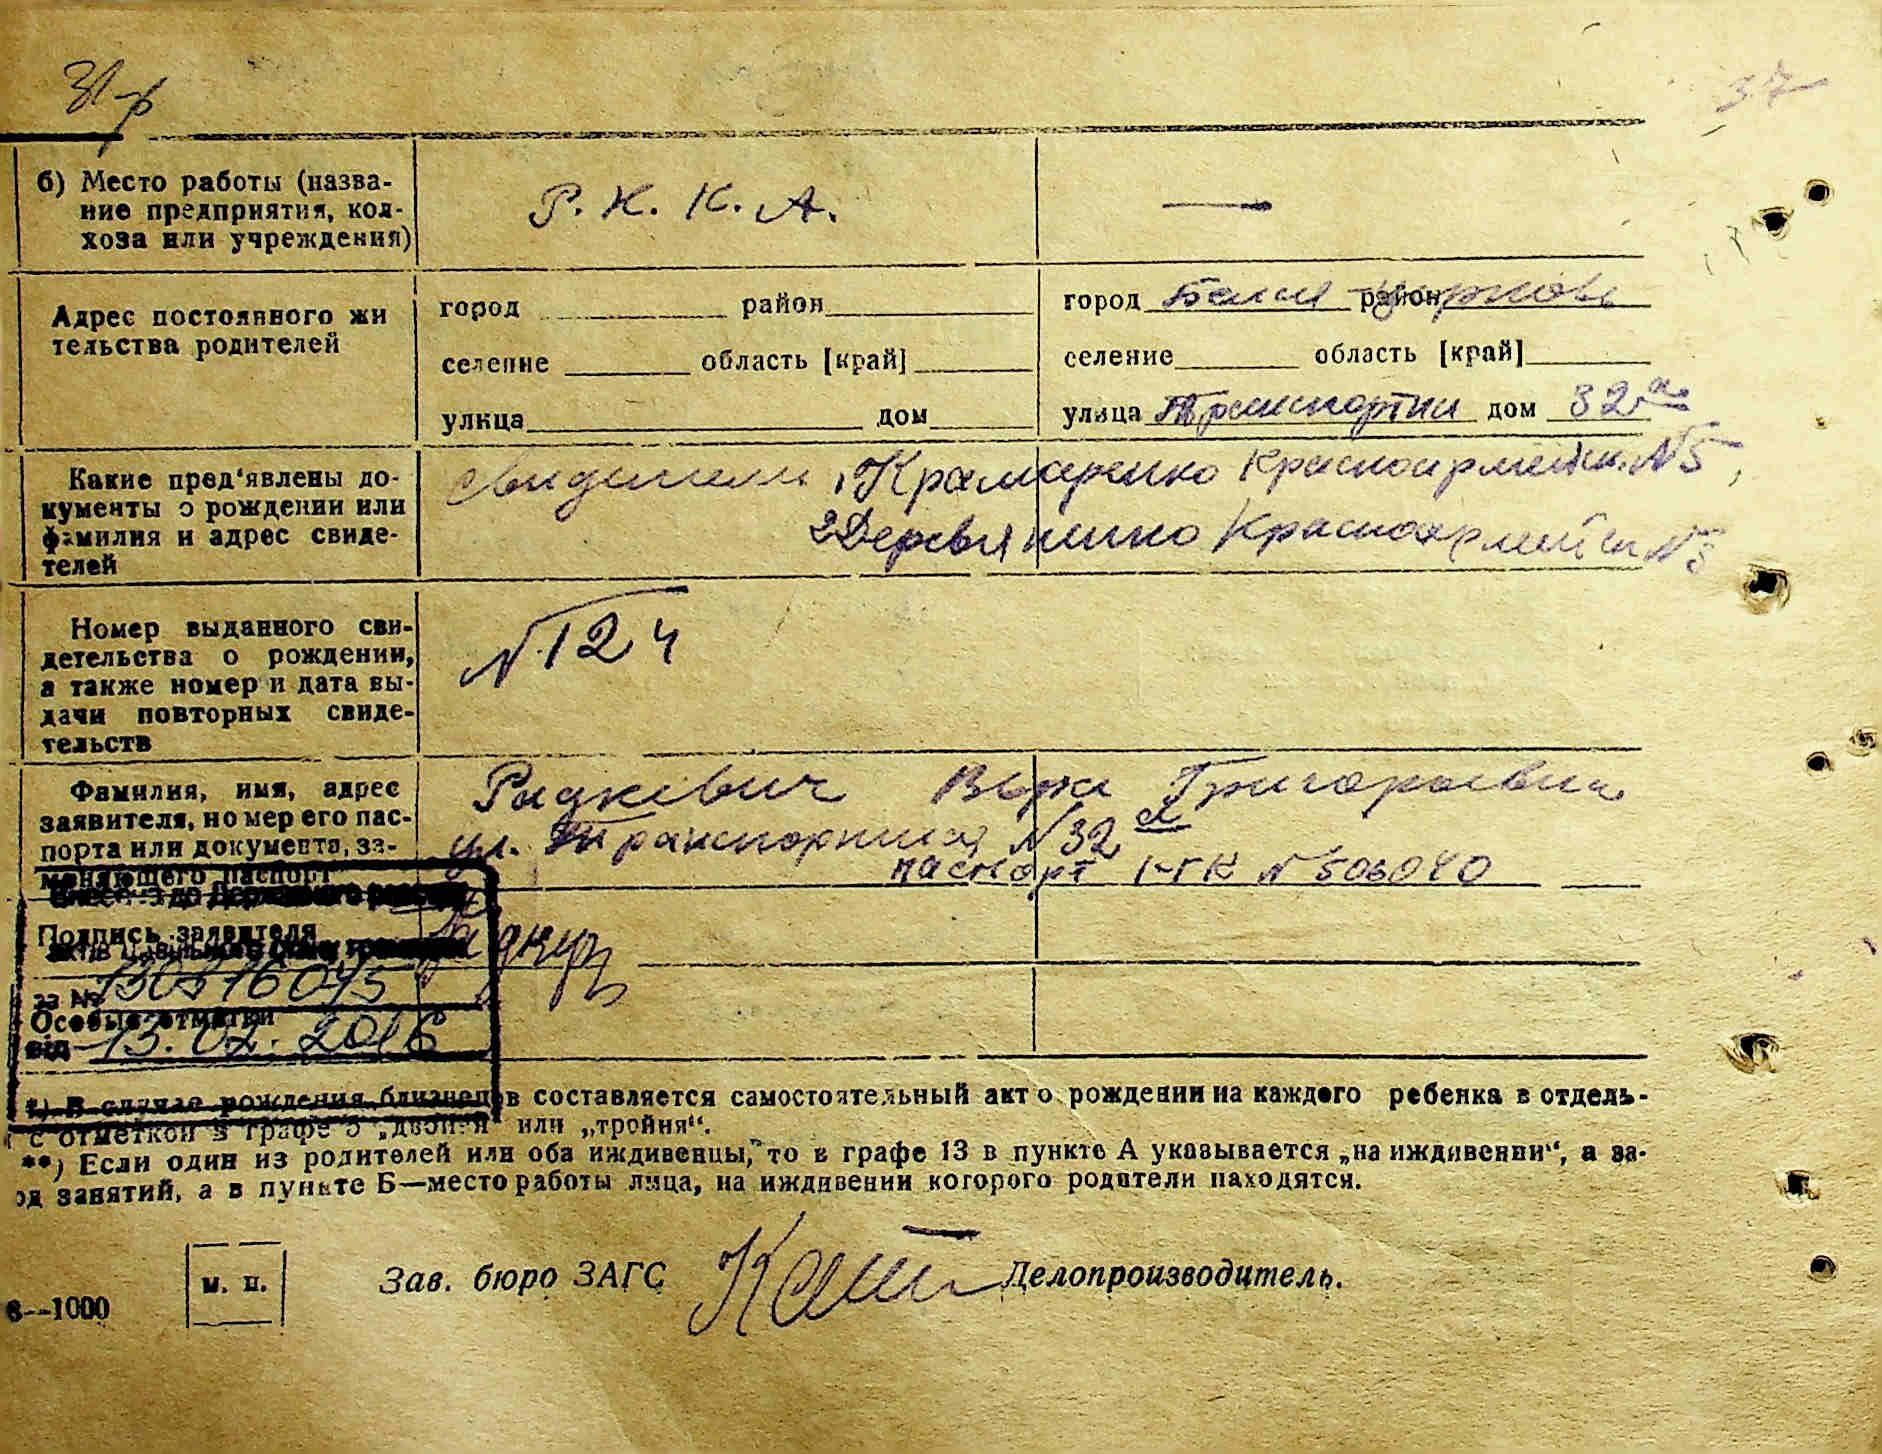 37
б) Место работы (назва-
ние предприятия, кол-
хоза или учреждения)
Р. К. К. А.
—
Адрес постоянного жи
тельства родителей
город район
селение область [край]
улица дом
город Белая Церковь район
селение область [край]
улица Транспортна дом 32а
Какие пред'явлены до-
кументы о рождении или
фамилия и адрес свиде-
телей
свидетели 1 Крамаренко Красноармейск. №5,
2 Деревянченко Красноармейск №3
Номер выданного сви-
детельства о рождении,
а также номер и дата вы-
дачи повторных свиде-
тельств
№ 124
Фамилия, имя, адрес
заявителя, номер его пас-
порта или документа, за-
меняющего паспорт
Радкевич Вера Григорьевна
ул. Транспортная №32 а
паспорт I-ГК № 506040
Подпись заявителя
за №
Особые отметки
від 13.02.2016
*) В случае рождения близнецов составляется самостоятельный акт о рождении на каждого ребенка в отдель-
с отметкой в графе 5 „двойня" или „тройня".
**) Если один из родителей или оба иждивенцы, то в графе 13 в пункте А указывается „на иждивении", а за-
од занятий, а в пункте Б—место работы лица, на иждивении которого родители находятся.
м. п.
Зав. бюро ЗАГС
Делопроизводитель.
6—1000